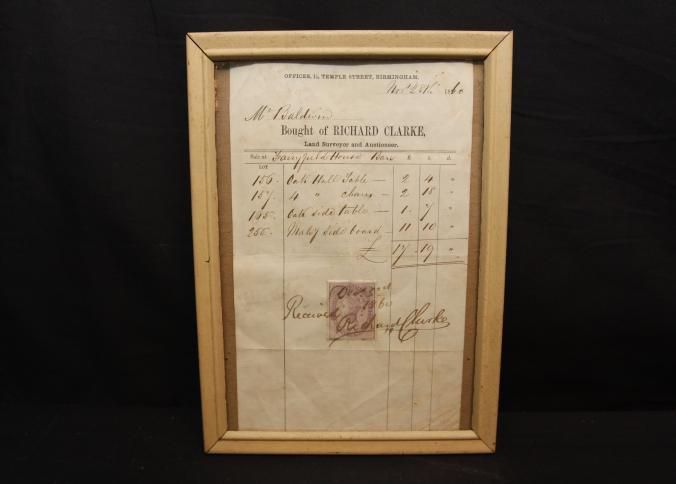 OFFICES, 14, TEMPLE STREET, BIRMINGHAM,
Novr 28th 1860
Mr Baldwin
Bought of RICHARD CLARKE,
Land Surveyor and Auctioneer.
Sale at Fairyfield House Barr £ s. d.
LOT
156 - Oak Hall Table - 2 4 "
157 - 4 " chairs - 2 18 "
165 - Oak side table - 1 - 7 "
255 - Mahy side board - 11 10 "
£ 17 - 19 "
Decr 3rd
1860
Received
Richard Clarke